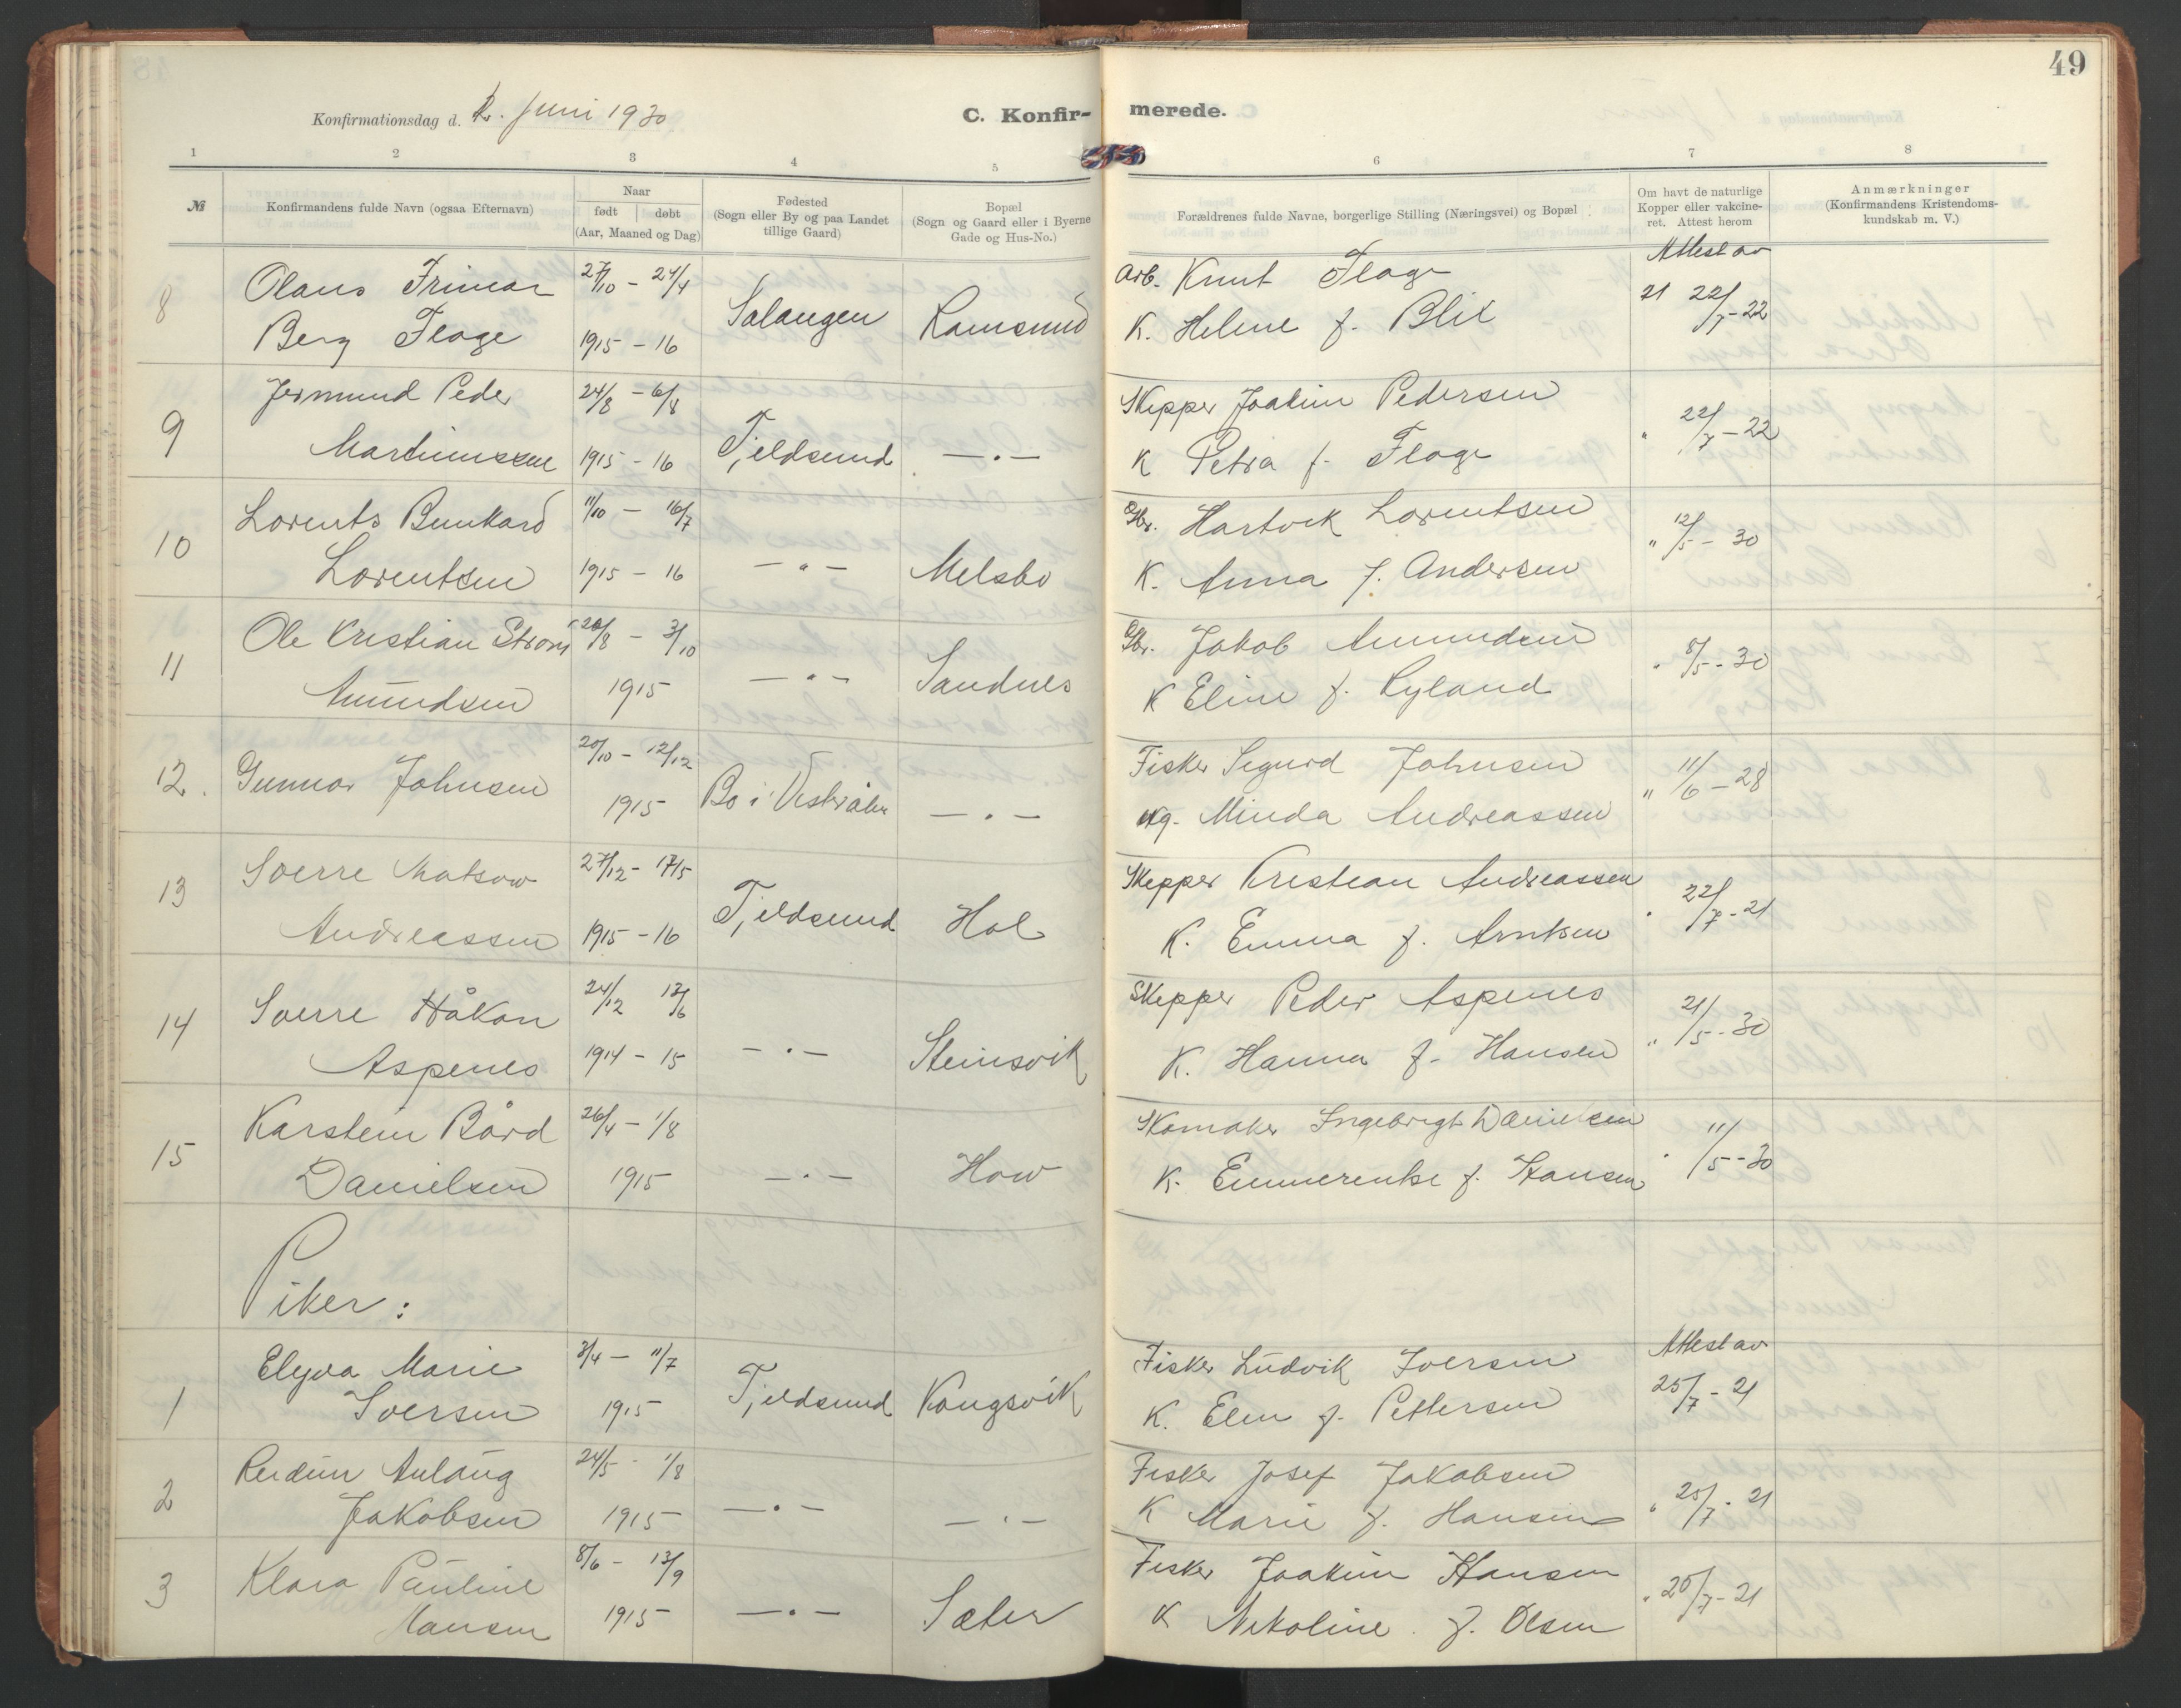 49
Konfirmationsdag d. 2. Juni 1930
C. Konfir- merede.
1 2 3 4 5 6 7 8
№
Konfirmandens fulde Navn (ogsaa Efternavn)
Naar
født døbt
(Aar, Maaned og Dag)
Fødested
(Sogn eller By og paa Landet
tillige Gaard)
Bopæl
(Sogn og Gaard eller i Byerne
Gade og Hus-No.)
Forældrenes fulde Navne, borgerlige Stilling (Næringsvei) og Bopæl
Om havt de naturlige
Kopper eller vakcine-
ret. Attest herom
Anmærkninger
(Konfirmandens Kristendoms-
kundskab m. V.)
8 Olaus Frimar 27/10 - 24/4 Salangen Ramsund Arb. Knut Flage Attest av
Berg Flage 1915 - 16 K. Helene f. Blix 21 22/7-22
9 Jermund Peder 24/8 - 6/8 Tjeldsund — " — Skipper Joakim Pedersen " 22/7-22
Martinussen 1915 - 16 K Petra f. Flage
10 Lorents 11/10 - 16/7 — " — Melsbo Gbr. Hartvik Lorentsen " 12/5 - 30
Lorentsen 1915 - 16 K. Anna f. Andersen
11 Ole Kristian Strøm 28/8 - 3/10 — " — Sandnes Gbr. Jakob Amundsen " 8/5 - 30
Amundsen 1915 K Eline f. Ryland
12. Gunnar Johnsen 20/10 - 12/12 Bø i Vesterålen — " — Fisker Sigurd Johnsen " 11/6 - 28
1915 Minda Andreassen
13 Sverre Matsow 27/12 - 17/5 Tjeldsund Hol Skipper Kristian Andreassen " 22/7-21
Andreassen 1915 - 16 K. Emma f. Arntsen
14 Sverre Håkon 24/12 13/6 — " — Steinsvik Skipper Peder Aspenes " 21/5-30
Aspenes 1914 - 15 K. Hanna f. Hansen
15 Karstein Bård 26/4 - 1/8 — " — How Skomaker Ingebrigt Danielsen " 11/5-30
Danielsen 1915 K. Emmerentse f. Hansen
Piker:
1 Elyva Marie 3/4 - 11/7 Tjeldsund Kongsvik Fisker Ludvik Iversen Attest av
Iversen 1915 K. Elen f. Pettersen 25/7-21
2 Reidun Aulaug 24/5 - 1/8 — " — — " — Fisker Josef Jakobsen " 25/7-21
Jakobsen 1915 K Marie f. Hansen
3 Klara Pauline 8/6 - 13/9 — " — Sæter Fisker Joakim Hansen " 25/7-21
Hansen 1915 K Nikoline f. Olsen